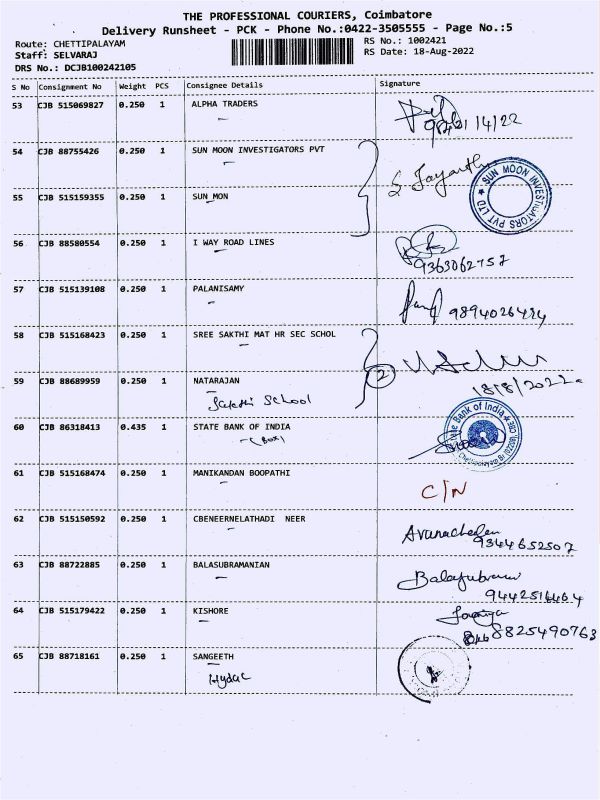 THE PROFESSIONAL COURIERS, Coimbatore
Delivery Runsheet - PCK - Phone No.:0422-3505555 - Page No.:5
Route: CHETTIPALAYAM RS No.: 1002421
Staff: SELVARAJ RS Date: 18-Aug-2022
DRS No.: DCJB100242105
S No Consignment No Weight PCS Consignee Details Signature
53 CJB 515069827 0.250 1 ALPHA TRADERS
54 CJB 88755426 0.250 1 SUN MOON INVESTIGATORS PVT
S. Jayanthi
SUN MOON INVESTIGATORS PVT LTD
55 CJB 515159355 0.250 1 SUN_MON
56 CJB 88580554 0.250 1 I WAY ROAD LINES
9363062757
57 CJB 515139108 0.250 1 PALANISAMY
9894026484
58 CJB 515168423 0.250 1 SREE SAKTHI MAT HR SEC SCHOL
2
59 CJB 88689959 0.250 1 NATARAJAN
Sakthi School
18/8/2022
60 CJB 86318413 0.435 1 STATE BANK OF INDIA
(BOX)
State Bank of India
Chettipalayam Br
61 CJB 515168474 0.250 1 MANIKANDAN BOOPATHI
C/N
62 CJB 515150592 0.250 1 CBENEERNELATHADI NEER
9344652507
63 CJB 88722885 0.250 1 BALASUBRAMANIAN
9442516464
64 CJB 515179422 0.250 1 KISHORE
8825490763
65 CJB 88718161 0.250 1 SANGEETH
Hydac